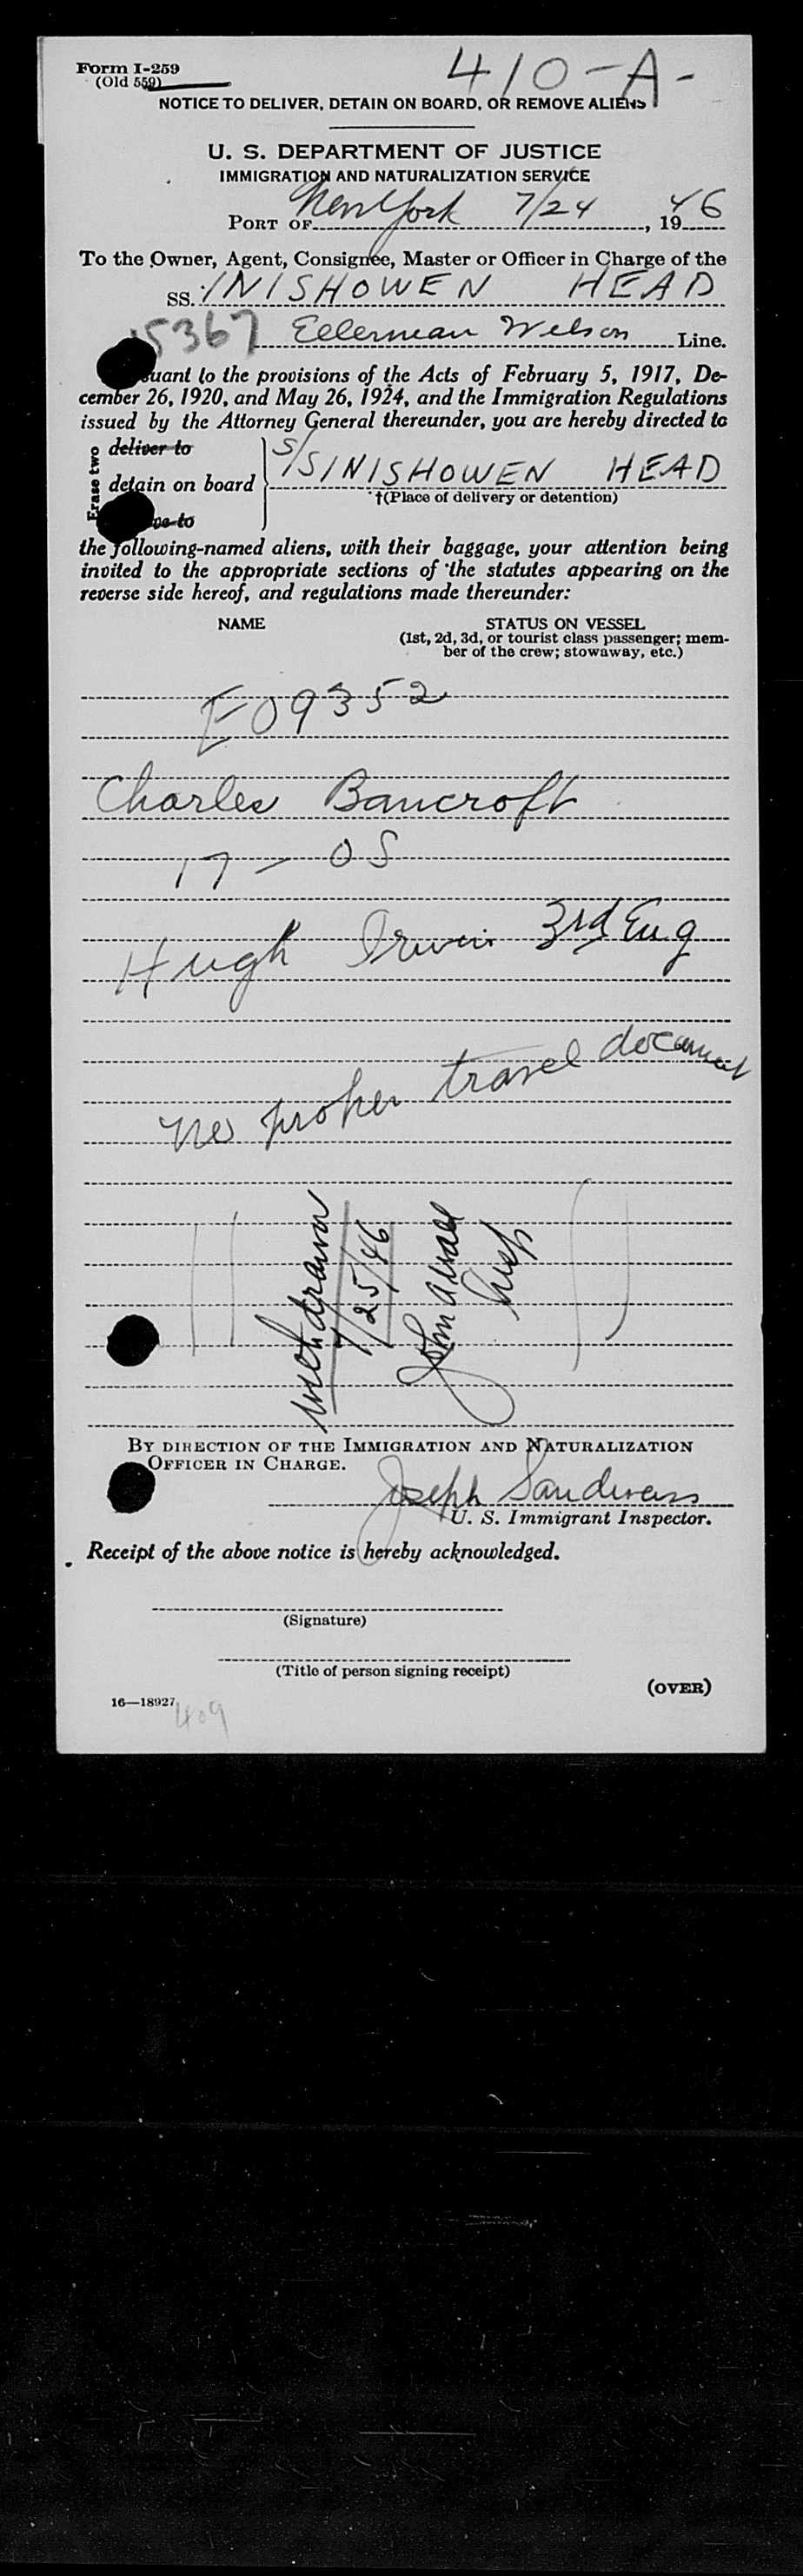 Form I-259
(Old 559)
410-A-
NOTICE TO DELIVER, DETAIN ON BOARD, OR REMOVE ALIENS
U. S. DEPARTMENT OF JUSTICE
IMMIGRATION AND NATURALIZATION SERVICE
PORT OF New York 7/24, 1946
To the Owner, Agent, Consignee, Master or Officer in Charge of the
SS. INISHOWEN HEAD
5367 Ellerman Wilson Line.
suant to the provisions of the Acts of February 5, 1917, De-
cember 26, 1920, and May 26, 1924, and the Immigration Regulations
issued by the Attorney General thereunder, you are hereby directed to
Erase two
deliver to
detain on board
ve to
S/S INISHOWEN HEAD
†(Place of delivery or detention)
the following-named aliens, with their baggage, your attention being
invited to the appropriate sections of the statutes appearing on the
reverse side hereof, and regulations made thereunder:
NAME STATUS ON VESSEL
(1st, 2d, 3d, or tourist class passenger; mem-
ber of the crew; stowaway, etc.)
E09352
Charles Bancroft
17 - OS
Hugh Irwin 3rd Eng
No proper travel document
withdrawn
7/25/46
John
Insp
BY DIRECTION OF THE IMMIGRATION AND NATURALIZATION
OFFICER IN CHARGE.
Joseph
U. S. Immigrant Inspector.
Receipt of the above notice is hereby acknowledged.
(Signature)
(Title of person signing receipt)
(OVER)
16—18927
409